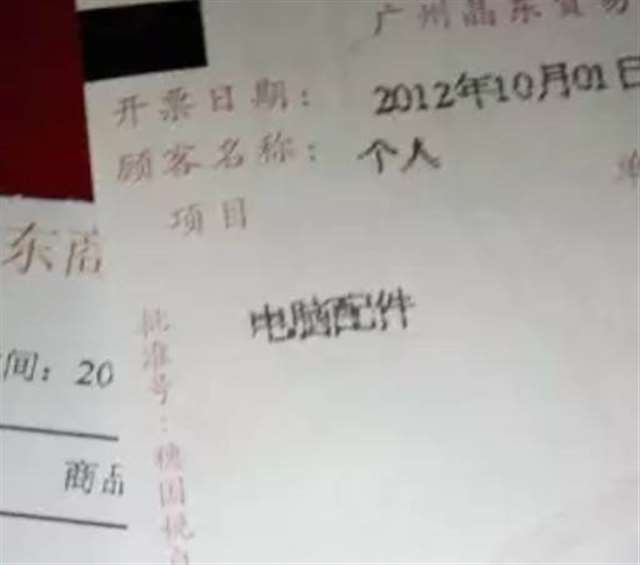 广州晶东贸易
开票日期: 2012年10月01日
顾客名称: 个人
项目
电脑配件
批准号:穗国税
东
间: 20
商品